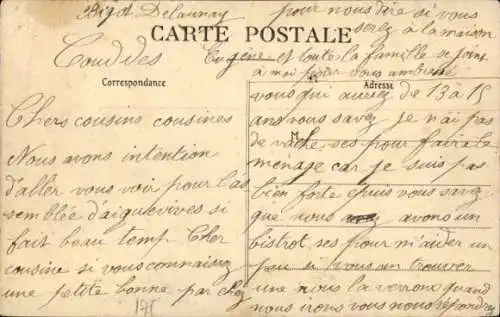 Bigot Delaunay
Couddes
CARTE POSTALE
Correspondance
Chers cousins cousines
Nous avons intention
d'aller vous voir pour l'as
semblée d'aiguevives si
fait beau temp Cher
cousine si vous connaissez
une petite bonne par chez
175
pour nous dire si vous
serez à la maison
Eugène et toute la famille se joint
à moi pour vous
Adresse
vous qui auriez de 13 à 15
ans vous savez je n'ai pas
de vache ses pour faire le
ménage car je suis pas
bien forte epuis vous savez
que nous avons un
bistrot ses pour m'aider un
peu si vous en trouver
une nous la verrons quand
nous irons vous nous repondrez